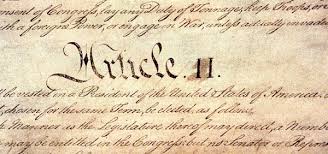 onsent of Congress, lay any Duty of Tonnage, keep Troops, or
th a foreign Power, or engage in War, unless actually invaded
Article. II.
be vested in a President of the United States of America.
, chosen for the same Term, be elected, as follows
Manner as the Legislature thereof may direct, a Number
may be entitled in the Congress: but no Senator or Repres